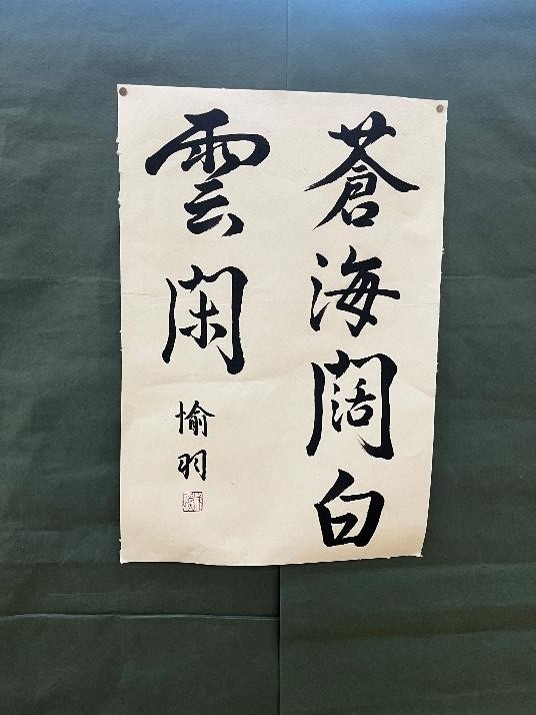 蒼海闊白
雲閑
愉羽